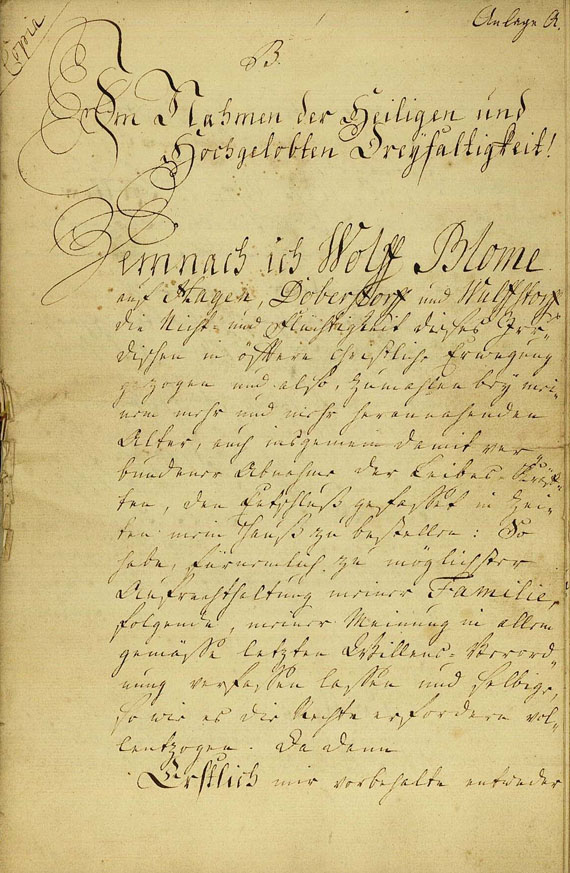 Copia
Anlage A.
B.
Im Nahmen der Heiligen und
Hochgelobten Dreyfaltigkeit!
Demnach ich Wolff Blome
auf Hagen, Doberstorff und Wulffstorff
die Nicht- und Flüchtigkeit dieses Irr-
dischen in öfftere Christliche Erwegung
gezogen und also, zumahlen bey mei-
nem mehr und mehr herannahenden
Alter, auch insgemein damit ver
bundener Abnahme der Leibes-Kräff-
ten, den Entschluß gefasset in Zei-
ten mein Hauß zu bestellen: So
habe, fürnemlich zu möglichster
Aufrechthaltung meiner Familie,
folgende, meiner Meinung in allem
gemässe letzten Willens-Verord-
nung verfassen lassen und selbige,
so wie es die Rechte erfordern vol-
lentzogen. Da dann
Erstlich mir vorbehalte entweder